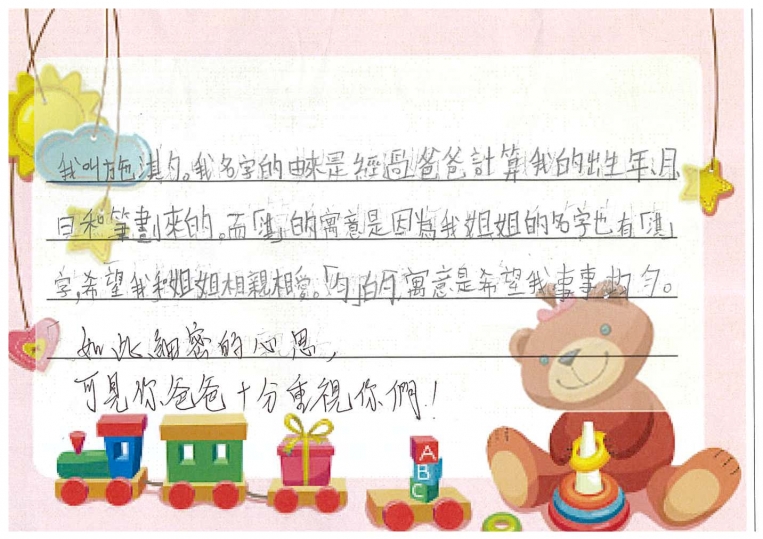 我叫施淇勻。我名字的由來是經過爸爸計算我的出生年、月、
日和筆劃來的。而「淇」的寓意是因為我姐姐的名字也有「淇」
字,希望我和姐姐相親相愛。「勻」的寓意是希望我事事均勻。
如此細密的心思,
可見你爸爸十分重視你們!
A
B
C